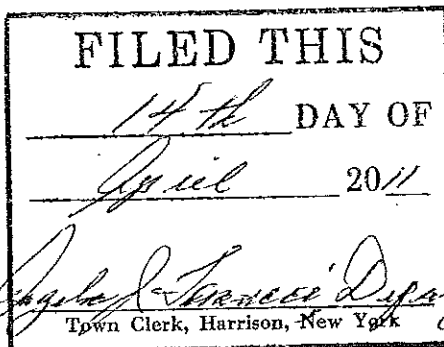 FILED THIS
14th DAY OF
April 2011
Angela J
Town Clerk, Harrison, New York